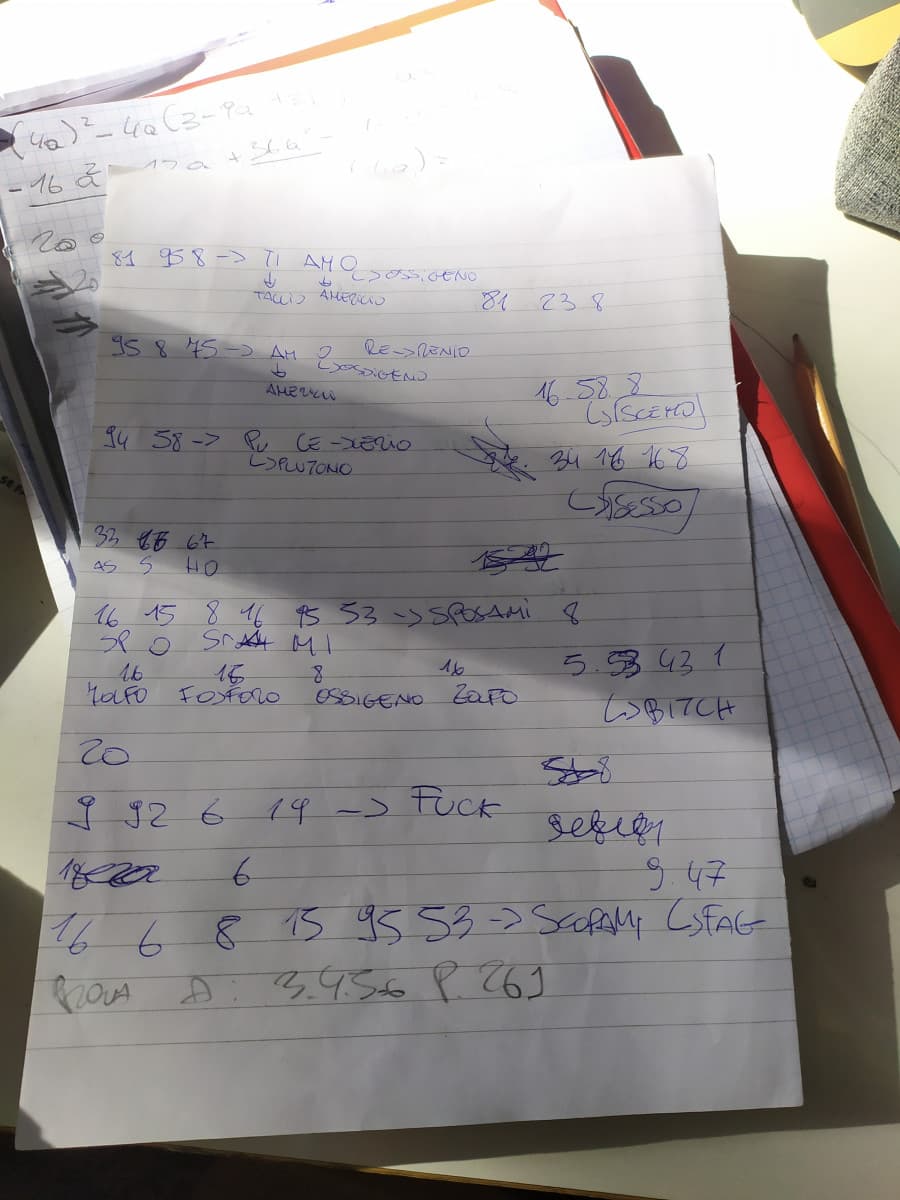 (4a)² - 4a(3-9a
- 16a² 12a + 36a²
20
81 958 -> TI AMO
↳ OSSIGENO
TALLIO AMERICIO
81 23 8
95 8 75 -> AM O RE -> RENIO
↳ OSSIGENO
AMERICIO
16 . 58 . 8
↳ SCEMO
94 58 -> PU CE -> CERIO
↳ PLUTONO
34 16 16 8
↳ SESSO
33 16 67
AS S HO
16 15 8 16 95 53 -> SPOSAMI 8
SP O S MI
16 15 8 16
ZOLFO FOSFORO OSSIGENO ZOLFO
5 . 53 43 1
↳ BITCH
20
8
9 92 6 19 -> FUCK
9 . 47
↳ FAG
18 6
16 6 8 15 95 53 -> SCOPAMI
PROVA A: 3.4.5-6 P. 261